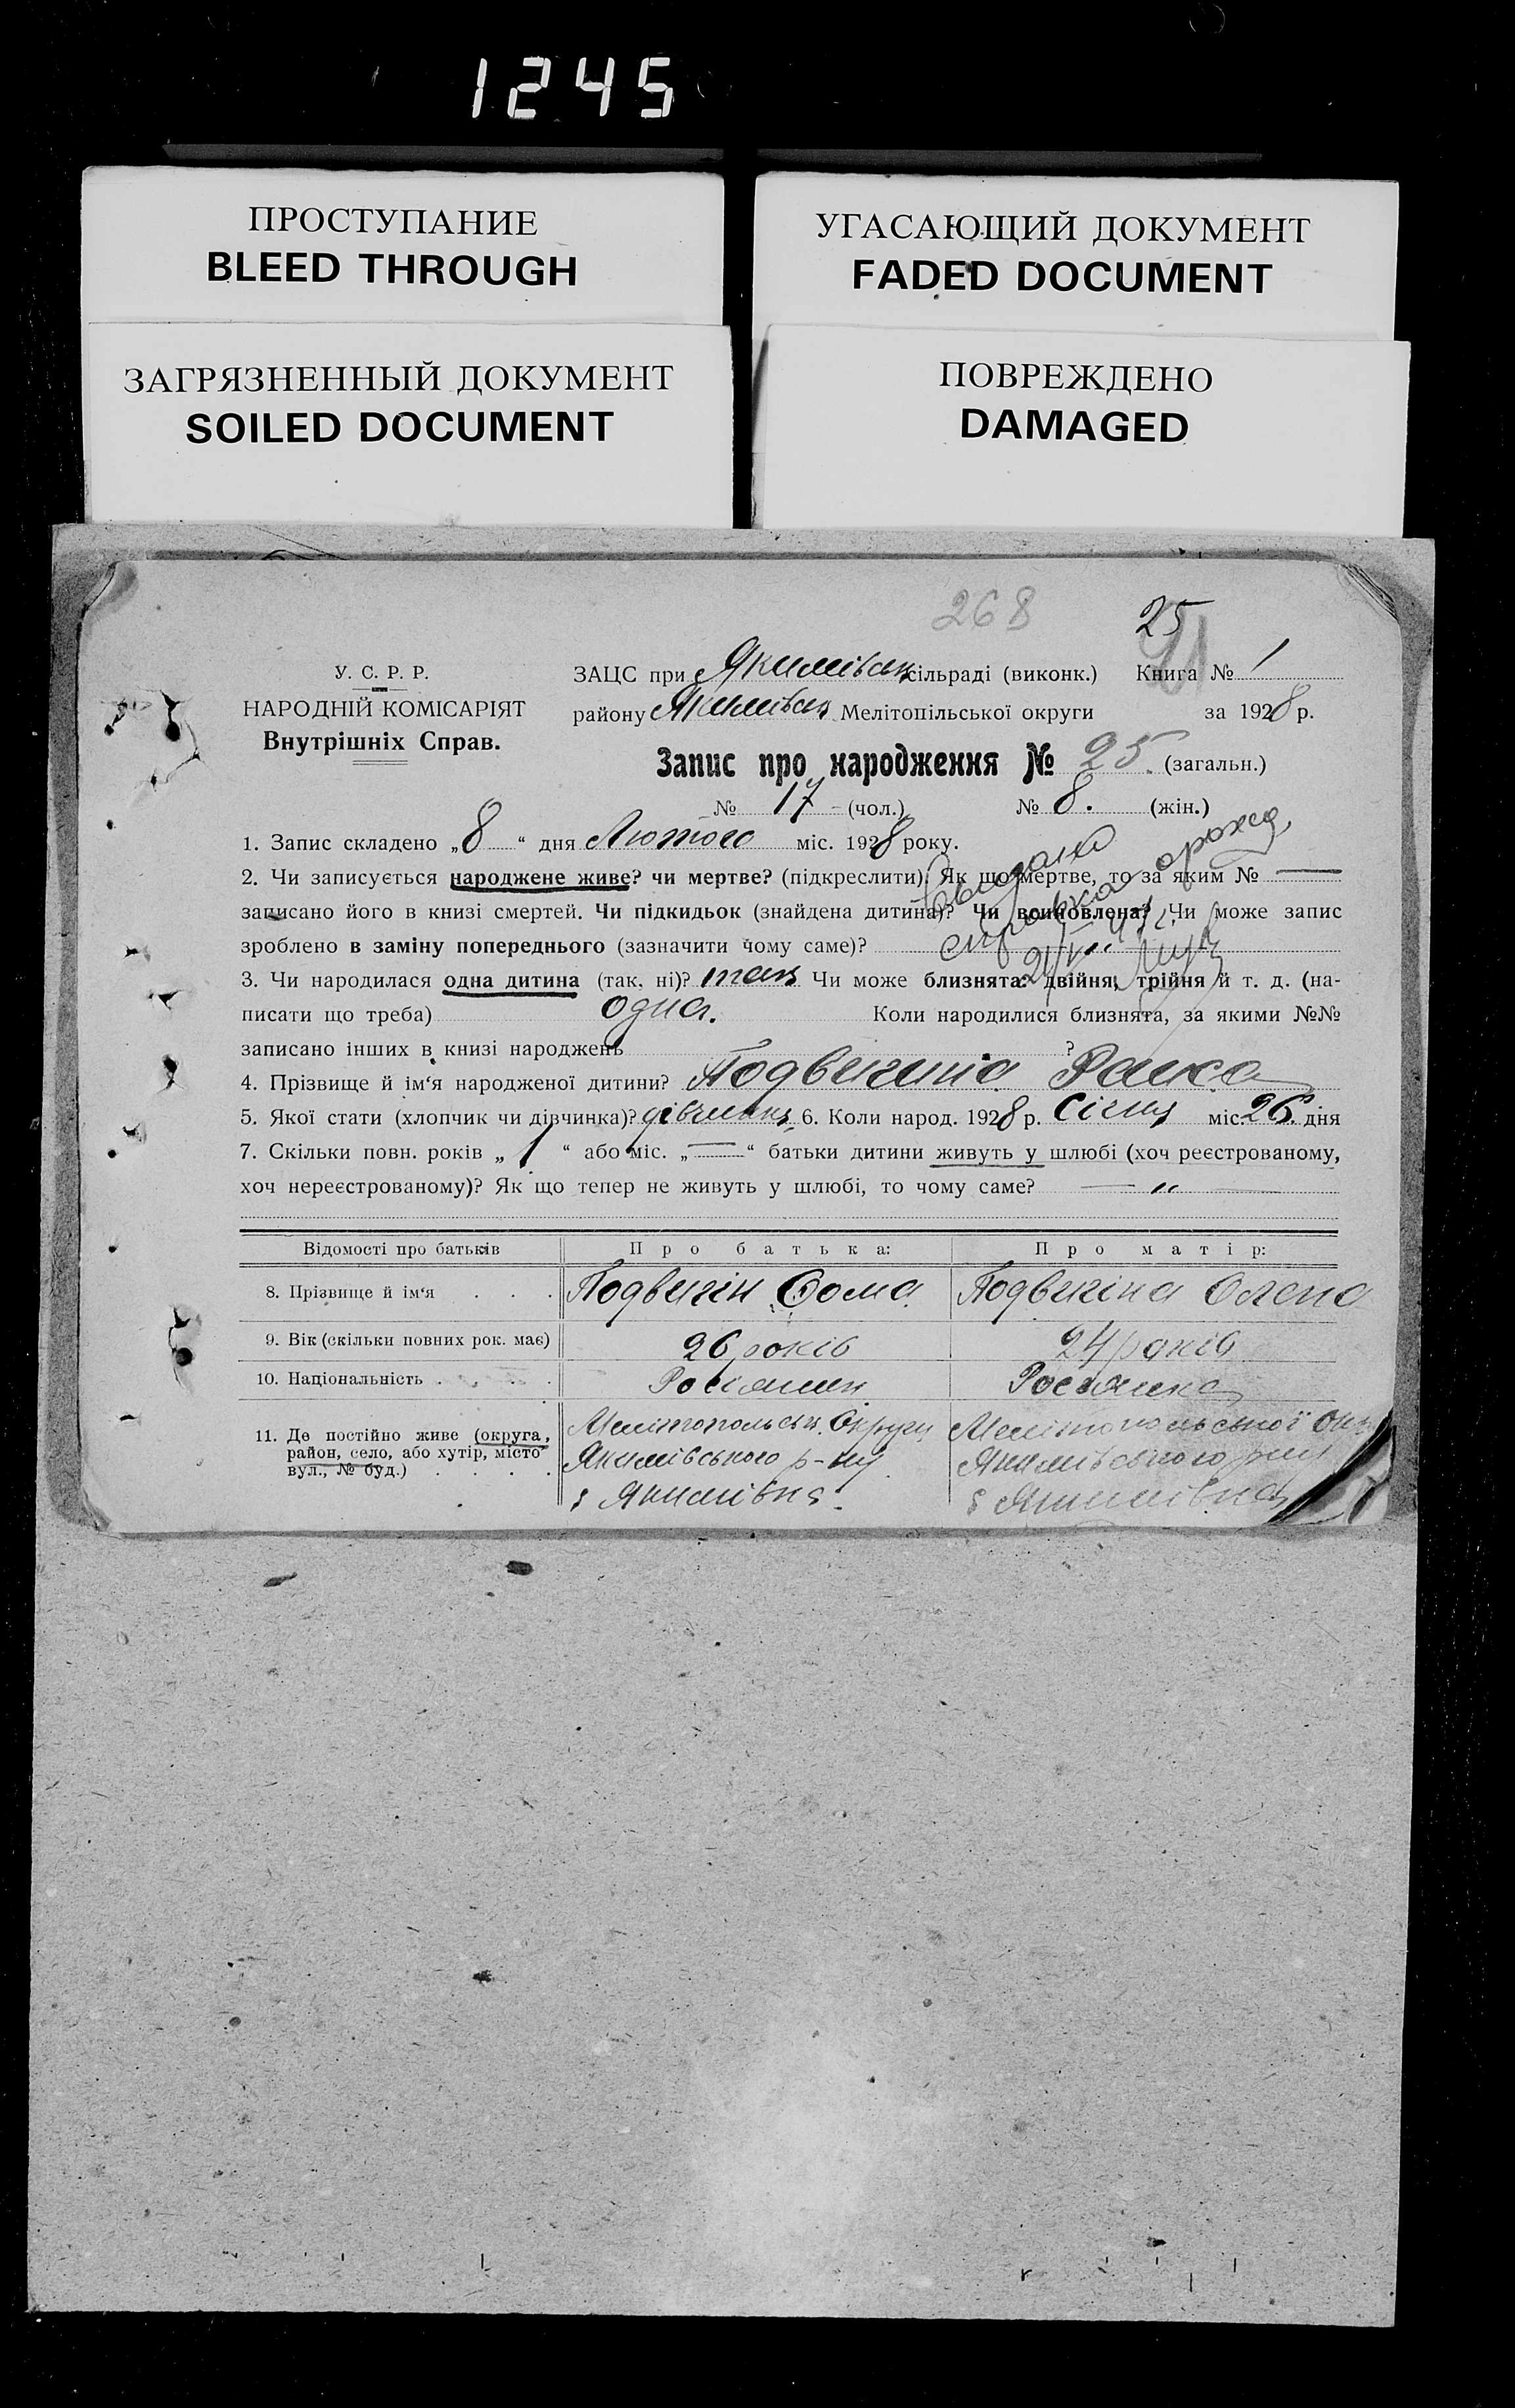 1245
ПРОСТУПАНИЕ
BLEED THROUGH
УГАСАЮЩИЙ ДОКУМЕНТ
FADED DOCUMENT
ЗАГРЯЗНЕННЫЙ ДОКУМЕНТ
SOILED DOCUMENT
ПОВРЕЖДЕНО
DAMAGED
268
25
21
У. С. Р. Р.
НАРОДНІЙ КОМІСАРІЯТ
Внутрішніх Справ.
ЗАЦС при Якимівськ сільраді (виконк.) Книга № 1
району Якимівськ Мелітопільської округи за 1928 р.
Запис про народження № 25. (загальн.)
№ 17 (чол.) № 8. (жін.)
1. Запис складено „8“ дня Лютого міс. 1928 року.
2. Чи записується народжене живе? чи мертве? (підкреслити). Як що мертве, то за яким № —
записано його в книзі смертей. Чи підкидьок (знайдена дитина)? Чи всиновлена? Чи може запис
зроблено в заміну попереднього (зазначити чому саме)?
Выдана
справка о рожд.
3. Чи народилася одна дитина (так, ні)? так Чи може близнята: двійня, трійня й т. д. (на-
писати що треба) одна. Коли народилися близнята, за якими №№
записано інших в книзі народжень ?
4. Прізвище й ім‘я народженої дитини? Подвигіна Раиса
5. Якої стати (хлопчик чи дівчинка)? дівчинка 6. Коли народ. 1928 р. Січня міс. 26. дня
7. Скільки повн. років „ 1 “ або міс. „ — “ батьки дитини живуть у шлюбі (хоч реєстрованому,
хоч нереєстрованому)? Як що тепер не живуть у шлюбі, то чому саме? — „ —
Відомості про батьків Про батька: Про матір:
8. Прізвище й ім‘я . . . Подвигін Фома Подвигіна Олена
9. Вік (скільки повних рок. має) 26 років 24 років
10. Національність . . . . Росіянин Росіянка
11. Де постійно живе (округа, район, село, або хутір, місто вул., № буд.) . . . .
Мелітопольськ. Округи
Якимівського р-ну
с Якимівка.
Мелітопольської Окр
Якимівського рну
с Якимівка